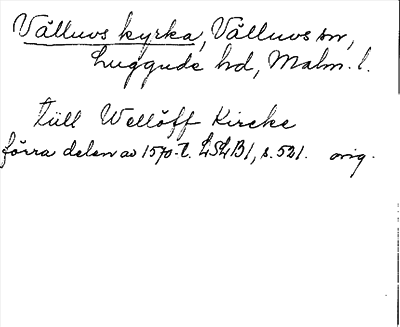 Välluvs kyrka, Välluvs sn,
Luggude hd, Malm. l.
till Wellöff Kircke
förra delen av 1570-t. LSLB1, s. 521. orig.